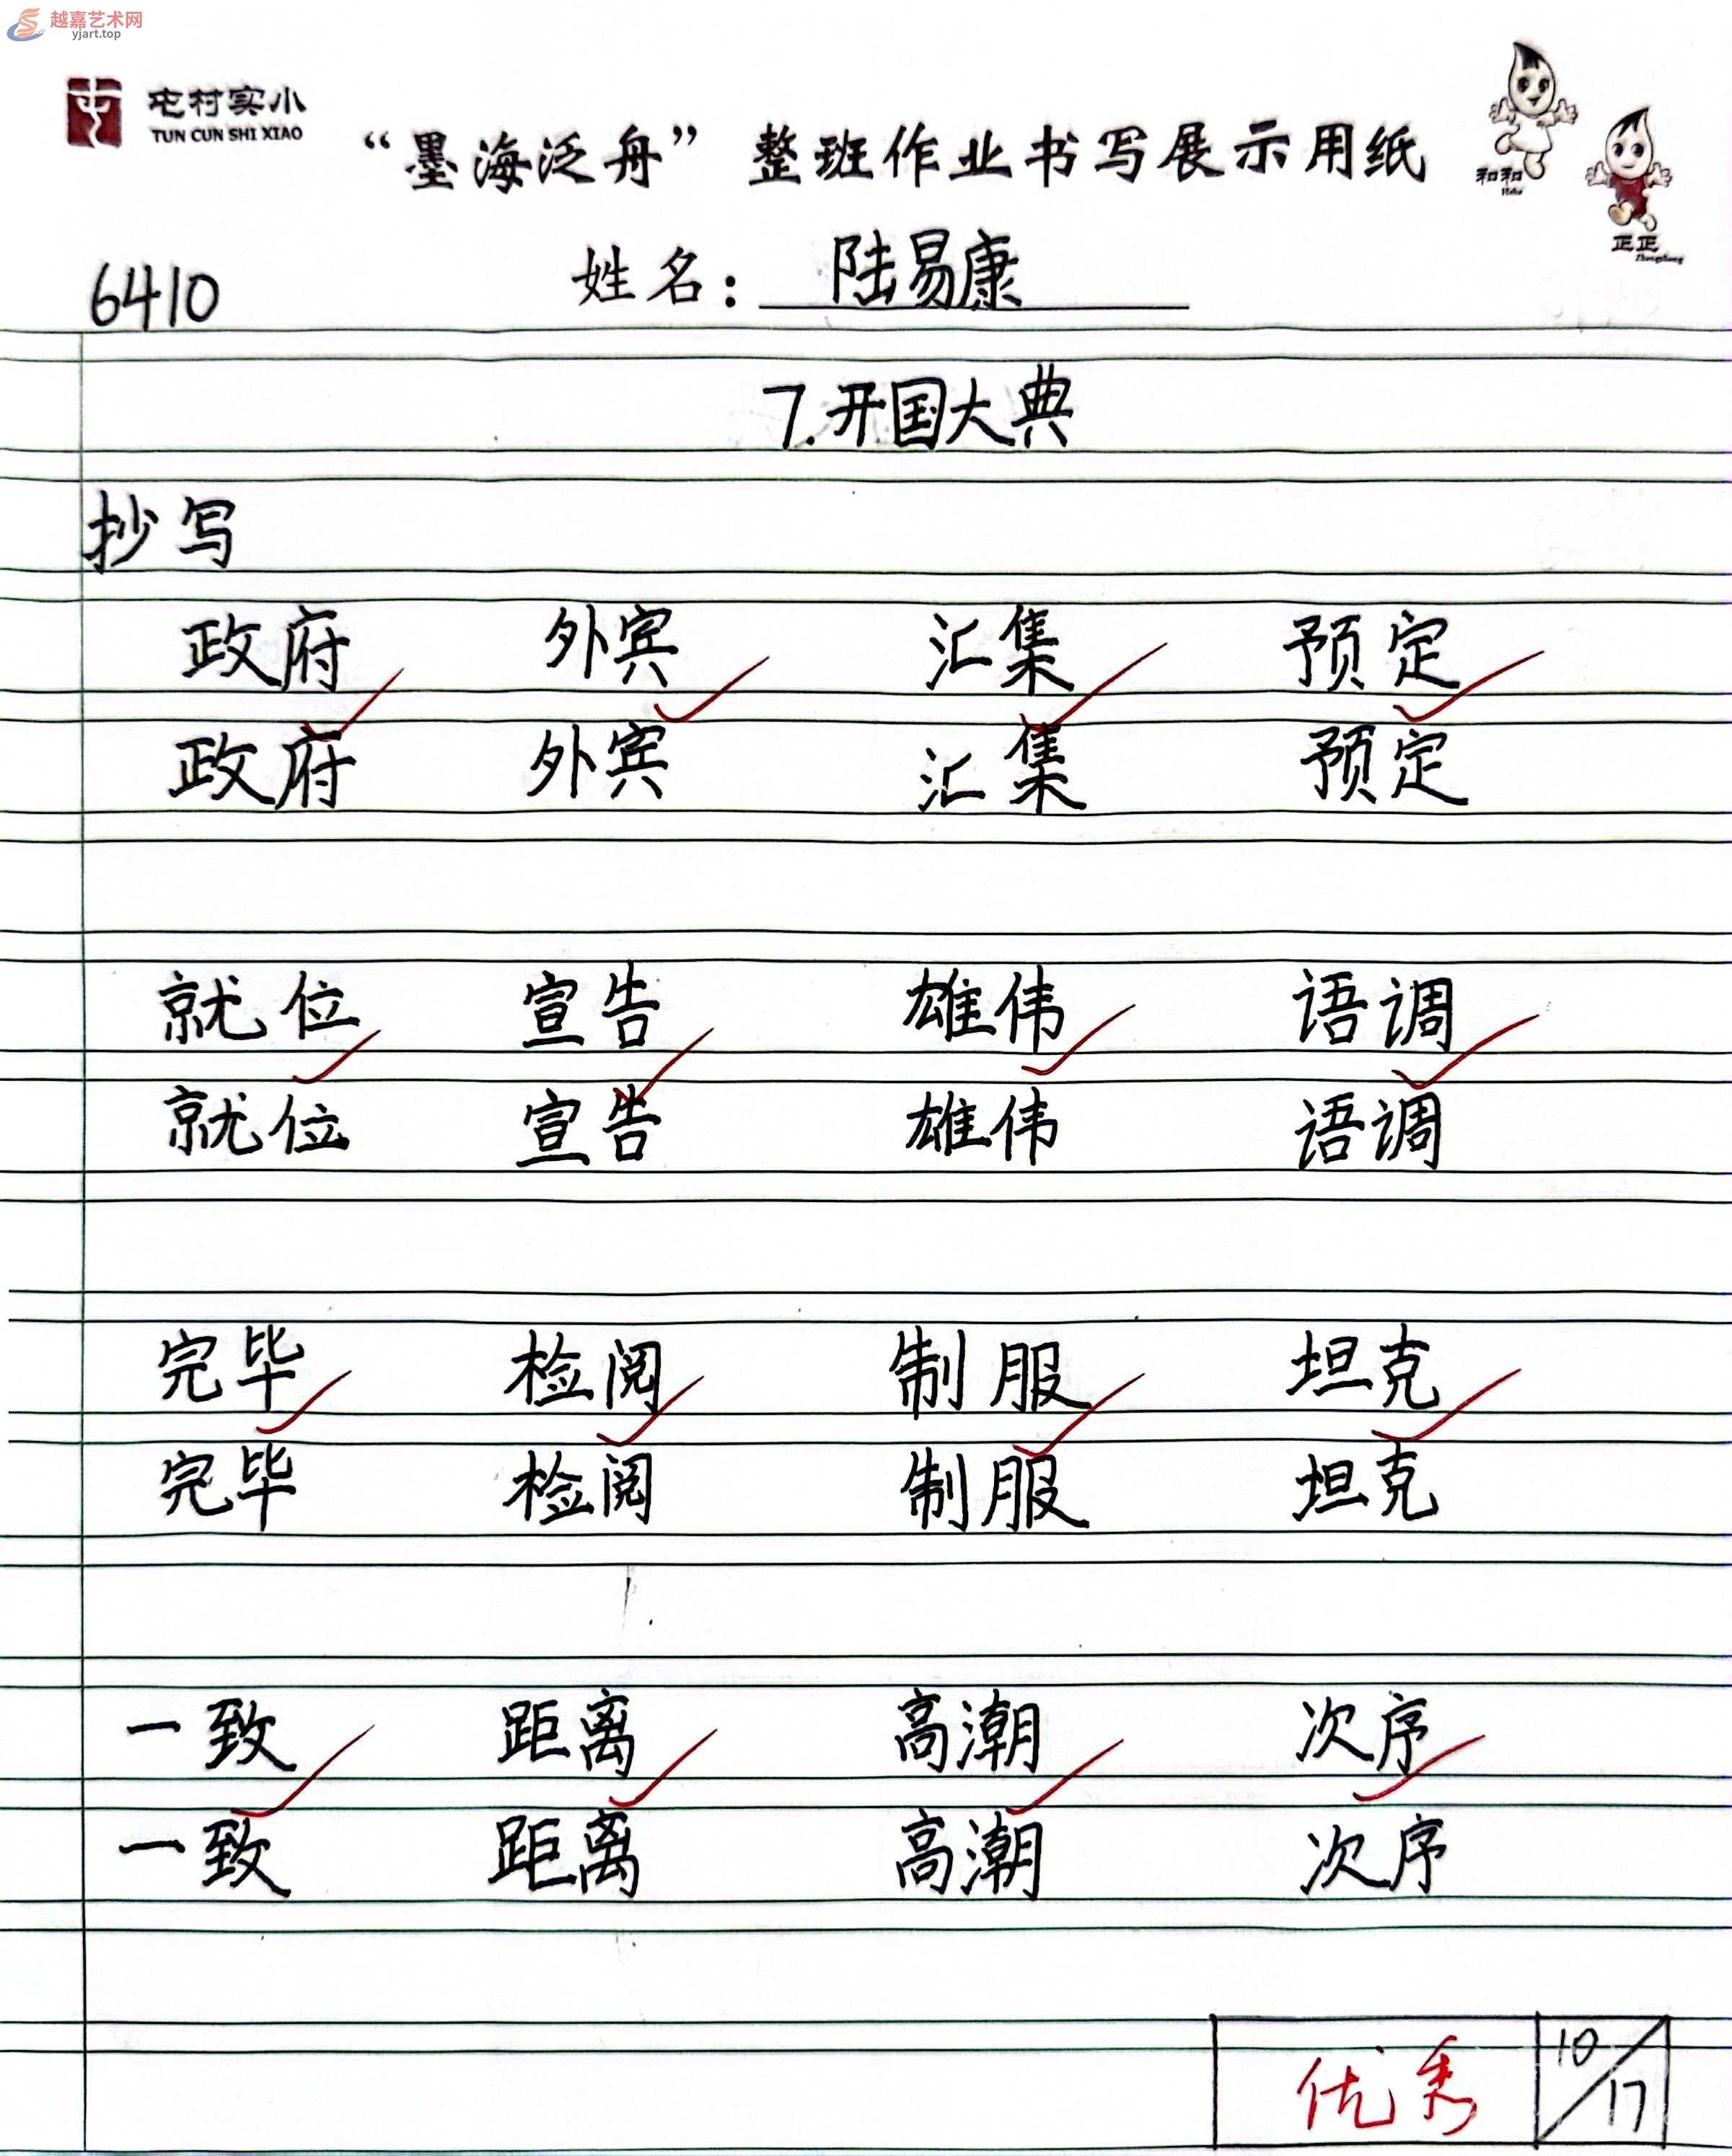 越嘉艺术网
yjart.top
屯村实小
TUN CUN SHI XIAO
“墨海泛舟”整班作业书写展示用纸
和和
Hehe
正正
Zhengzheng
6410 姓名：陆易康
7.开国大典
抄写
政府 外宾 汇集 预定
政府 外宾 汇集 预定
就位 宣告 雄伟 语调
就位 宣告 雄伟 语调
完毕 检阅 制服 坦克
完毕 检阅 制服 坦克
一致 距离 高潮 次序
一致 距离 高潮 次序
优秀 10/17